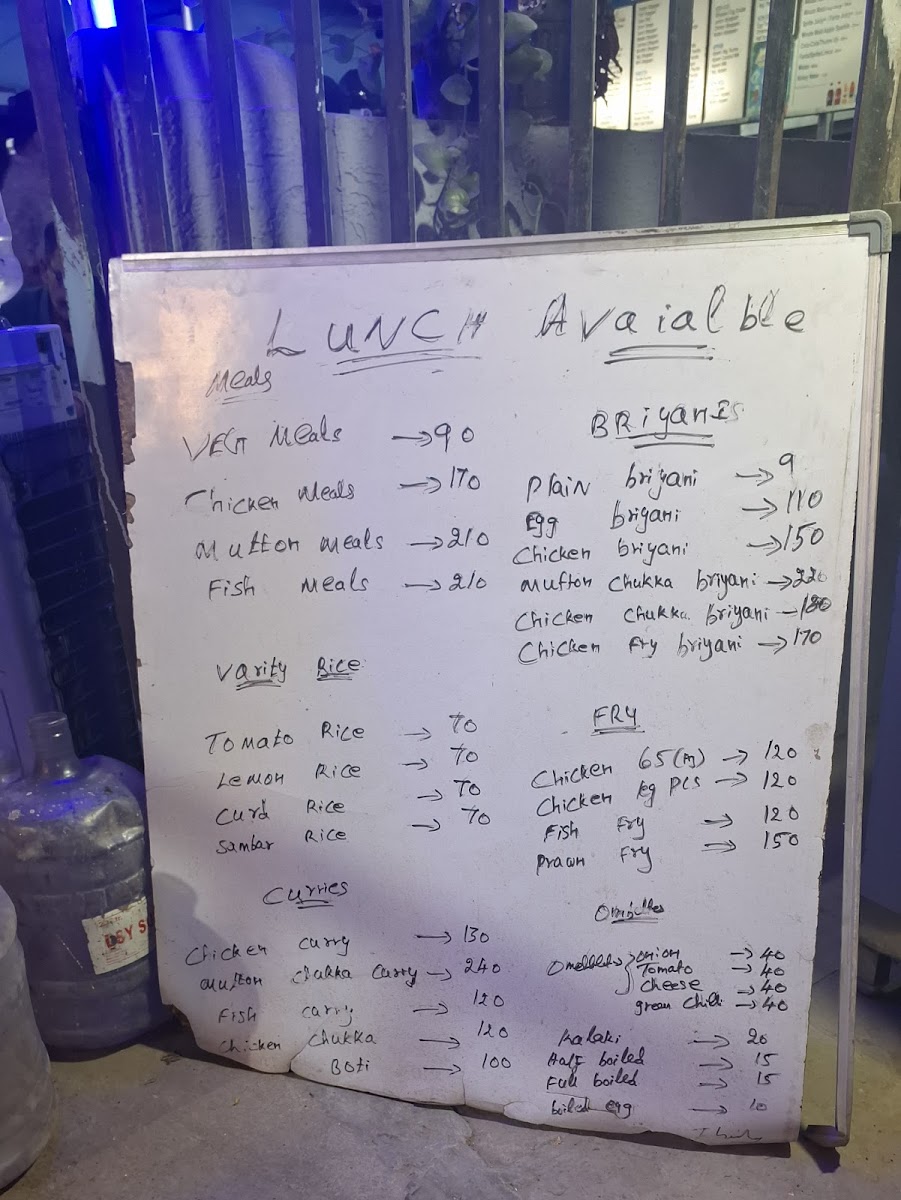 LUNCH Avaialble
Meals
VEG Meals →90
Chicken Meals →170
Mutton meals →210
Fish Meals →210
Varity Rice
Tomato Rice → 70
Lemon Rice → 70
Curd Rice → 70
Sambar Rice → 70
Curries
Chicken curry →130
Mutton chukka curry → 240
Fish curry → 120
Chicken chukka → 120
Boti → 100
BRiyanis
Plain briyani → 9
Egg briyani → 110
Chicken briyani →150
Mutton Chukka briyani →220
Chicken chukka briyani →180
Chicken Fry briyani → 170
FRY
Chicken 65 → 120
Chicken leg pcs → 120
Fish Fry → 120
Prawn Fry → 150
Omlettes
onion → 40
Tomato → 40
cheese → 40
green chilli → 40
Kalaki → 20
Half boiled → 15
Full boiled → 15
boiled egg → 10